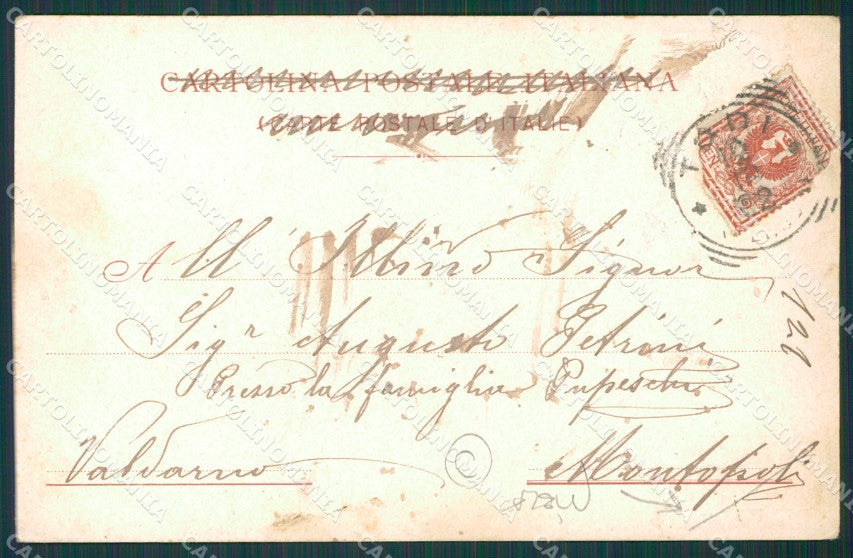 CARTOLINA POSTALE ITALIANA
(CARTE POSTALE D'ITALIE)
TODI
All' Illmo Signor
Sigr Augusto Petrini
Presso la famiglia Pupeschi
Valdarno Montopoli
121
C
CARTOLINOMANIA